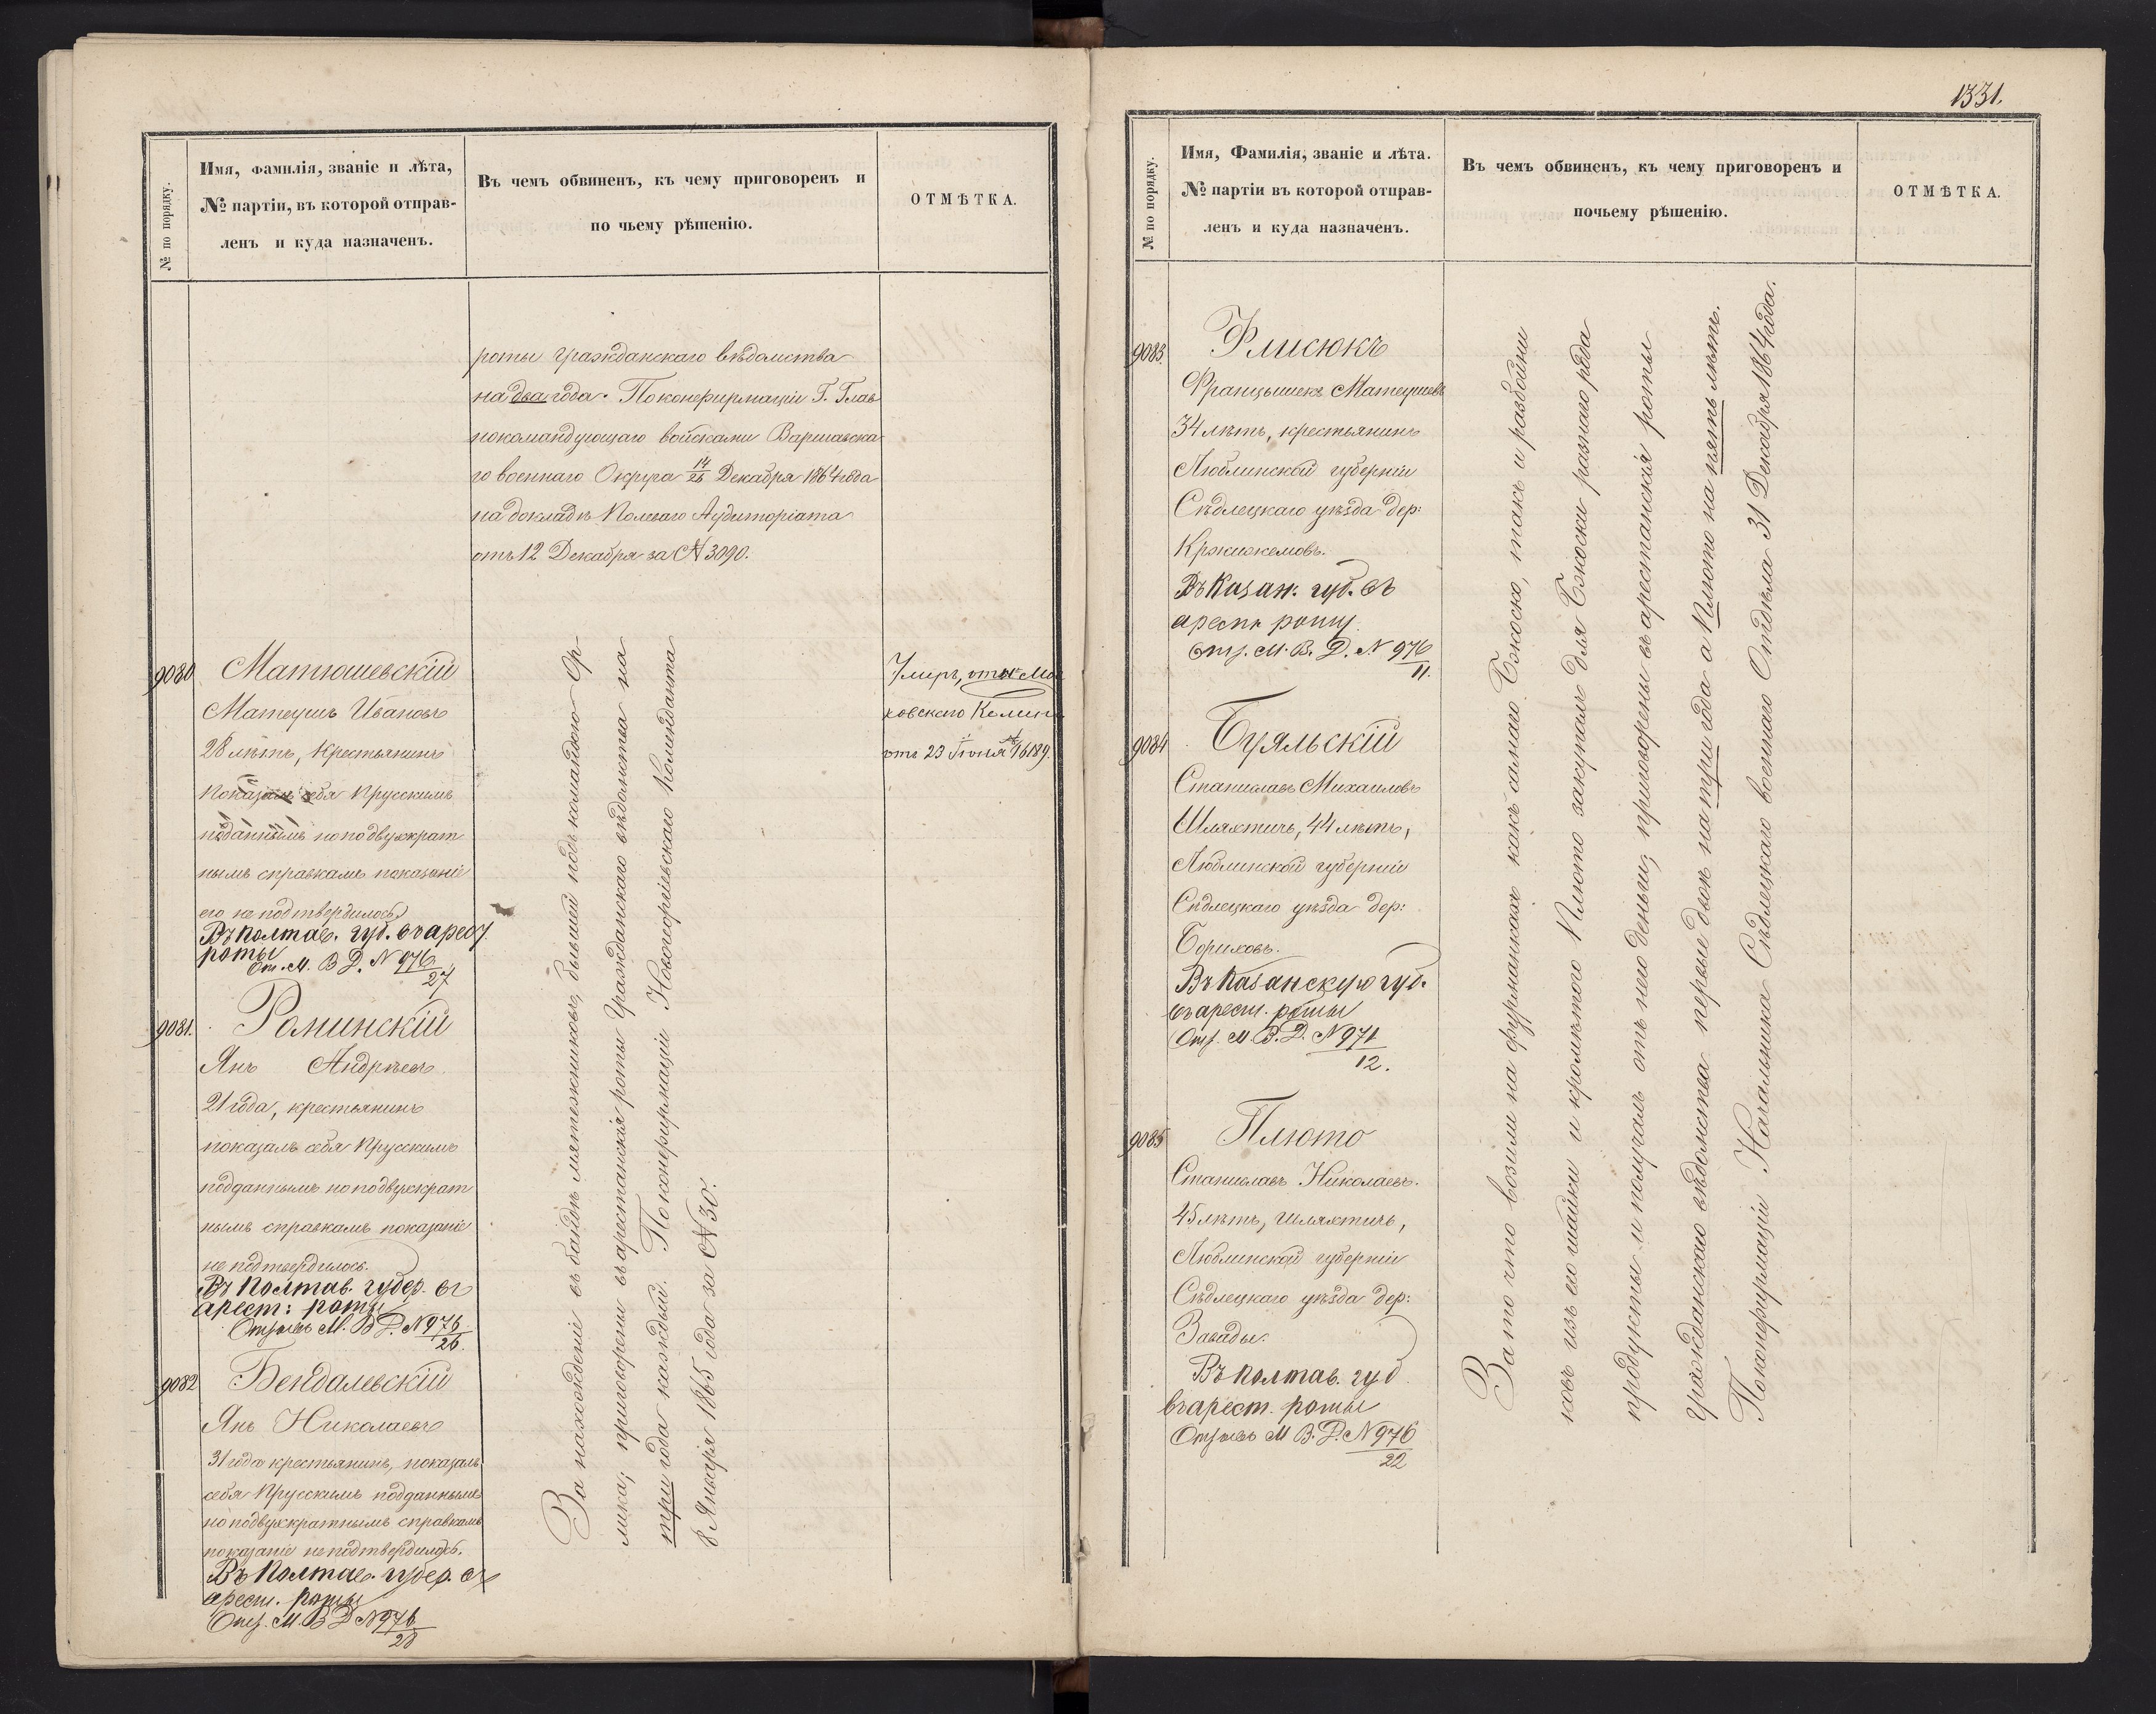 № по порядку.
Имя, фамилія, званіе и лѣта,
№ партіи, въ которой отправ-
ленъ и куда назначенъ.
Въ чемъ обвиненъ, къ чему приговоренъ и
по чьему рѣшенію.
ОТМѢТКА.
роты гражданскаго вѣдомства
на два года. По конфирмаціи Г. Глав
нокомандующаго войсками Варшавска
го военнаго Округа 14/26 Декабря 1864 года
на докладѣ Полеваго Аудиторіата
отъ 12 Декабря за № 3090.
9080
Матюшевскій
Матеушъ Ивановъ
28 лѣтъ, крестьянинъ
показалъ себя Прусскимъ
подданнымъ но по двукрат
нымъ справкамъ показаніе
его не подтвердилось
Въ Полтав. губ. въ арест
роты
От. М. В. Д. № 976/27
9081.
Роминскій
Янъ Андреевъ
21 года, крестьянинъ
показалъ себя Прусскимъ
подданнымъ но по двукрат
нымъ справкамъ показаніе
не подтвердилось.
Въ Полтав. губер. въ
арест: роты
Отзывъ М. В. Д. № 976/26.
9082
Бендалевскій
Янъ Николаевъ
31 года крестьянинъ, показалъ
себя Прусскимъ подданнымъ
но по двукратнымъ справкамъ
показаніе не подтвердилось.
Въ Полтав. губер. въ
арест. роты
Отз. М. В. Д. № 976/28
За нахожденіе въ бандѣ мятежниковъ, бывшей подъ командою Ор-
лика; приговорены въ арестанскія роты Гражданскаго вѣдомства на
три года каждый. По конфирмаціи Новогеоргіевскаго Коменданта
8 Января 1865 года за № 30.
Умеръ,
отъ 23 Іюня № 16189.
1331.
№ по порядку.
Имя, Фамилія, званіе и лѣта.
№ партіи въ которой отправ-
ленъ и куда назначенъ.
Въ чемъ обвиненъ, къ чему приговоренъ и
почьему рѣшенію.
ОТМѢТКА.
9083
Флисюкъ
Францышекъ Матеушевъ
34 лѣтъ, крестьянинъ
Люблинской губерніи
Сѣдлецкаго уѣзда дер:
Кржижемовъ.
Въ Казан. губ. въ
арест. роту
Отз. М. В. Д. № 976/11.
9084
Буяльскій
Станиславъ Михаиловъ
Шляхтичъ, 44 лѣтъ,
Люблинской губерніи
Сѣдлецкаго уѣзда дер:
Бориховъ.
Въ Казанскую губ.
въ арест. роты
Отз. М. В. Д. № 971/12.
9085
Плюто
Станиславъ Николаевъ.
45 лѣтъ, шляхтичъ,
Люблинской губерніи
Сѣдлецкаго уѣзда дер:
Завады.
Въ Полтав. губ.
въ арест. роты
Отзывъ М. В. Д. № 976/22
За то что возили на фурманкахъ какъ самаго Бжоско, такъ и разбойни
ковъ изъ его шайки и кромѣ того Плюто закупалъ для Бжоски разнаго рода
продукты и получалъ отъ него деньги; приговорены въ арестанскія роты
Гражданскаго вѣдомства первые двое на три года а Плюто на пять лѣтъ.
По конфирмаціи Начальника Сѣдлецкаго военнаго Отдѣла 31 Декабря 1864 года.